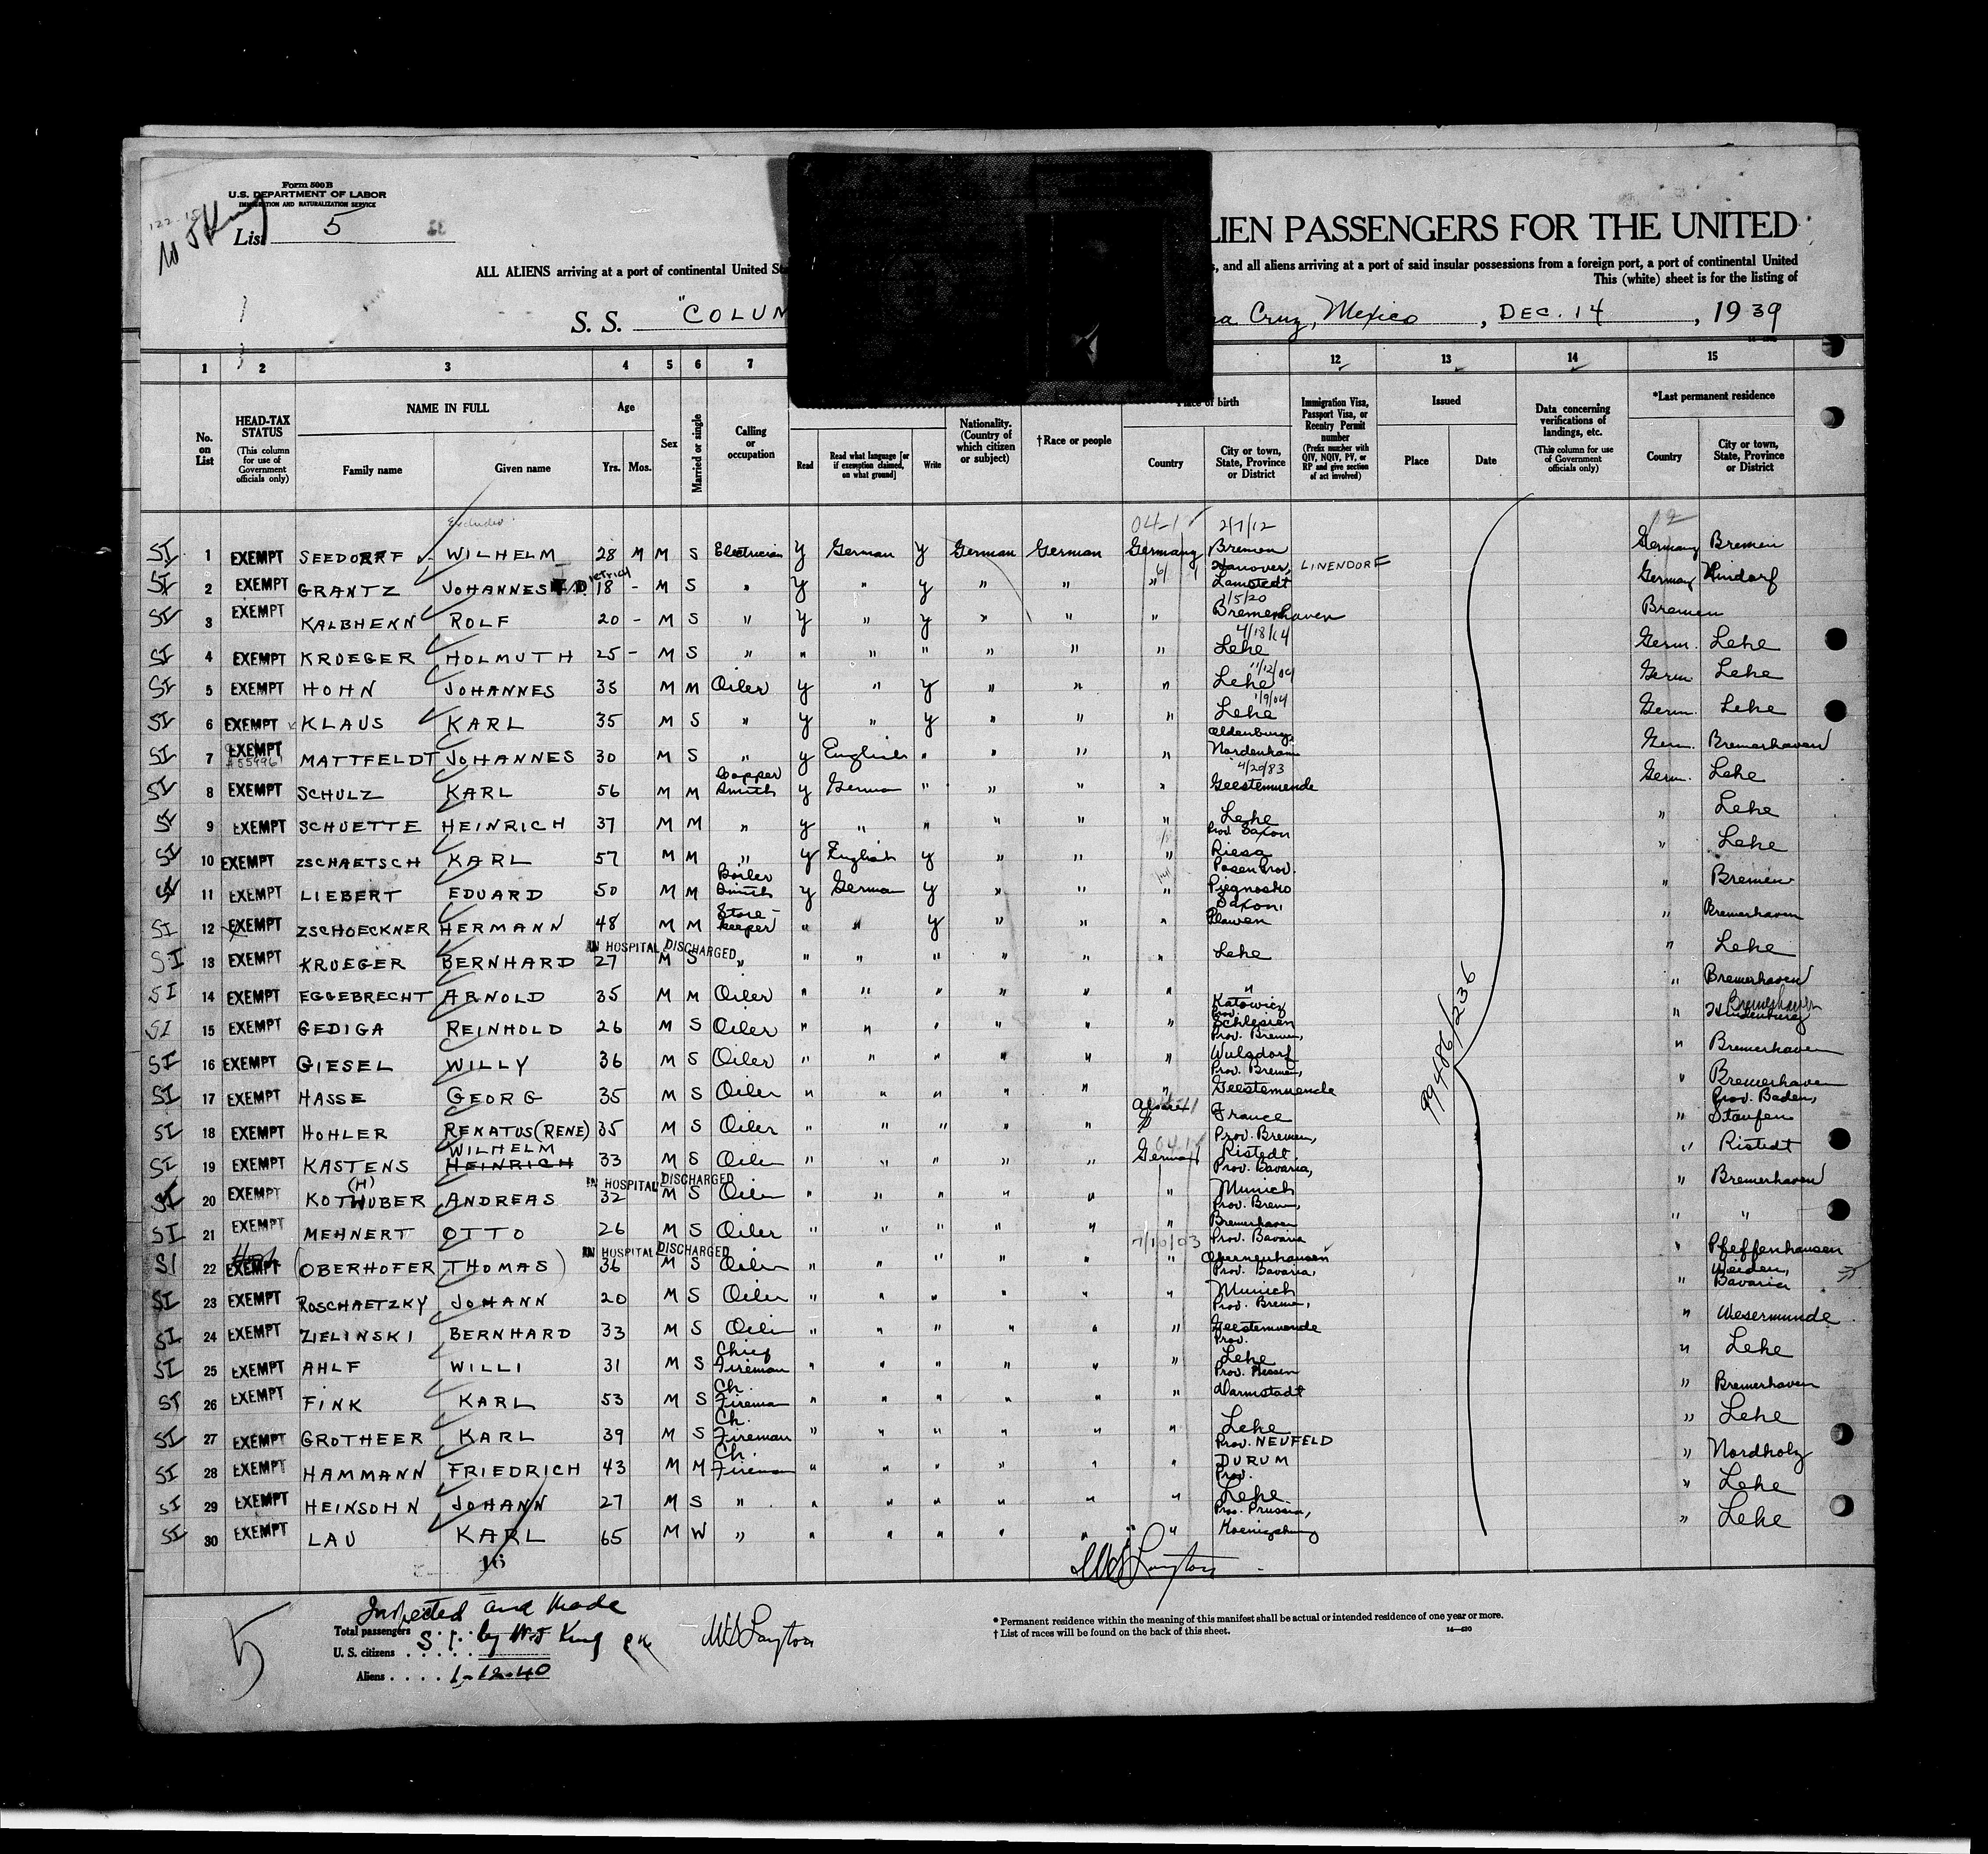 Form 500 B
U.S. DEPARTMENT OF LABOR
IMMIGRATION AND NATURALIZATION SERVICE
List 5
LIEN PASSENGERS FOR THE UNITED
ALL ALIENS arriving at a port of continental United St
s, and all aliens arriving at a port of said insular possessions from a foreign port, a port of continental United
This (white) sheet is for the listing of
S. S. "COLUM
ra Cruz, Mexico, DEC. 14, 1939
1 2 3 4 5 6 7 12 13 14 15
No. on List
HEAD-TAX STATUS (This column for use of Government officials only)
NAME IN FULL
Family name
Given name
Age
Yrs. Mos.
Sex
Married or single
Calling or occupation
Read
Read what language [or if exemption claimed, on what ground]
Write
Nationality. (Country of which citizen or subject)
† Race or people
Place of birth
Country
City or town, State, Province or District
Immigration Visa, Passport Visa, or Reentry Permit number (Prefix number with QIV, NQIV, PV, or RP and give section of act involved)
Issued
Place
Date
Data concerning verifications of landings, etc. (This column for use of Government officials only)
*Last permanent residence
Country
City or town, State, Province or District
Excluded
04-1 2/7/12
SI 1 EXEMPT SEEDORF WILHELM 28 M M S Electrician y German y German German Germany Bremen Germany Bremen
SI 2 EXEMPT GRANTZ JOHANNES Dietrich 18 - M S " y " y " " " Hanover, Lamstedt LINENDORF Germany
SI 3 EXEMPT KALBHENN ROLF 20 - M S " y " y " " " 1/5/20 Bremerhaven Bremen
SI 4 EXEMPT KROEGER HOLMUTH 25 - M S " " " " " " " 4/18/14 Lehe Germ. Lehe
SI 5 EXEMPT HOHN JOHANNES 35 M M Oiler y " y " " " 11/12/04 Lehe Germ. Lehe
SI 6 EXEMPT KLAUS KARL 35 M S " y " y " " " 1/9/04 Lehe Germ. Lehe
SI 7 EXEMPT MATTFELDT JOHANNES 30 M S " y English " " " " Oldenburg, Nordenham Germ. Bremerhaven
SI 8 EXEMPT SCHULZ KARL 56 M M Copper Smith y German " " " " 4/20/83 Geestemuende Germ. Lehe
SI 9 EXEMPT SCHUETTE HEINRICH 37 M M " y " " " " " Lehe " Lehe
SI 10 EXEMPT ZSCHAETSCH KARL 57 M M " y English y " " " Prov. Saxon Riesa " Lehe
SI 11 EXEMPT LIEBERT EDUARD 50 M M Boiler Smith y German y " " " Posen Prov. " Bremen
SI 12 EXEMPT ZSCHOECKNER HERMANN 48 M M Store-keeper " " y " " " Saxon, Plawen " Bremerhaven
IN HOSPITAL DISCHARGED
SI 13 EXEMPT KRUEGER BERNHARD 27 M S " " " " " " " Lehe " Lehe
SI 14 EXEMPT EGGEBRECHT ARNOLD 35 M M Oiler " " " " " " " " Bremerhaven
SI 15 EXEMPT GEDIGA REINHOLD 26 M S Oiler " " " " " " Katowicz Prov. Schlesien " Bremerhaven
SI 16 EXEMPT GIESEL WILLY 36 M S Oiler " " " " " " Prov. Bremen, Wulsdorf " Bremerhaven
SI 17 EXEMPT HASSE GEORG 35 M S Oiler " " " " " " Prov. Bremen, Geestemuende " Bremerhaven
SI 18 EXEMPT HOHLER RENATUS (RENE) 35 M S Oiler " " " " " France " Prov. Baden, Staufen
SI 19 EXEMPT KASTENS WILHELM HEINRICH 33 M S Oiler " " " " " Germany Prov. Bremen, Ristedt " Ristedt
IN HOSPITAL DISCHARGED
SI 20 EXEMPT KOTHUBER (H) ANDREAS 32 M S Oiler " " " " " " Prov. Bavaria, Munich " Bremerhaven
SI 21 EXEMPT MEHNERT OTTO 26 M S Oiler " " " " " " Prov. Brem., Bremerhaven " "
IN HOSPITAL DISCHARGED
SI 22 EXEMPT (OBERHOFER THOMAS) 36 M S Oiler " " " " " " Prov. Bavaria " Pfeffenhausen
SI 23 EXEMPT ROSCHAETZKY JOHANN 20 M S Oiler " " " " " " Prov. Bavaria, Munich " Weiden, Bavaria
SI 24 EXEMPT ZIELINSKI BERNHARD 33 M S Oiler " " " " " " Prov. Bremen, Geestemuende " Wesermunde
SI 25 EXEMPT AHLF WILLI 31 M S Chief Fireman " " " " " " Prov. Lehe " Lehe
SI 26 EXEMPT FINK KARL 53 M S Ch. Fireman " " " " " " Prov. Hessen Darmstadt " Bremerhaven
SI 27 EXEMPT GROTHEER KARL 39 M S Ch. Fireman " " " " " " Lehe " Lehe
SI 28 EXEMPT HAMMANN FRIEDRICH 43 M M Ch. Fireman " " " " " " Prov. NEUFELD DURUM " Nordholz
SI 29 EXEMPT HEINSOHN JOHANN 27 M S " " " " " " " Prov. Lehe " Lehe
SI 30 EXEMPT LAU KARL 65 M W " " " " " " " Prov. Prussia, Koenigsburg " Lehe
99486/236
16
5
Inspected and Made
Total passengers S. I. by W. J. King
U. S. citizens
Aliens 1-12-40
* Permanent residence within the meaning of this manifest shall be actual or intended residence of one year or more.
† List of races will be found on the back of this sheet.
14—420